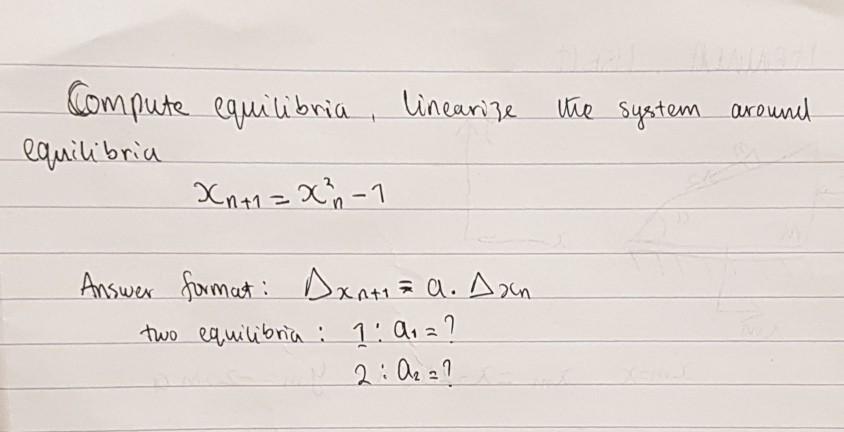 Compute equilibria, linearize the system around
equilibria
xₙ₊₁ = xₙ² - 1
Answer format: Δxₙ₊₁ = a. Δxₙ
two equilibria: 1: a₁ = ?
2: a₂ = ?